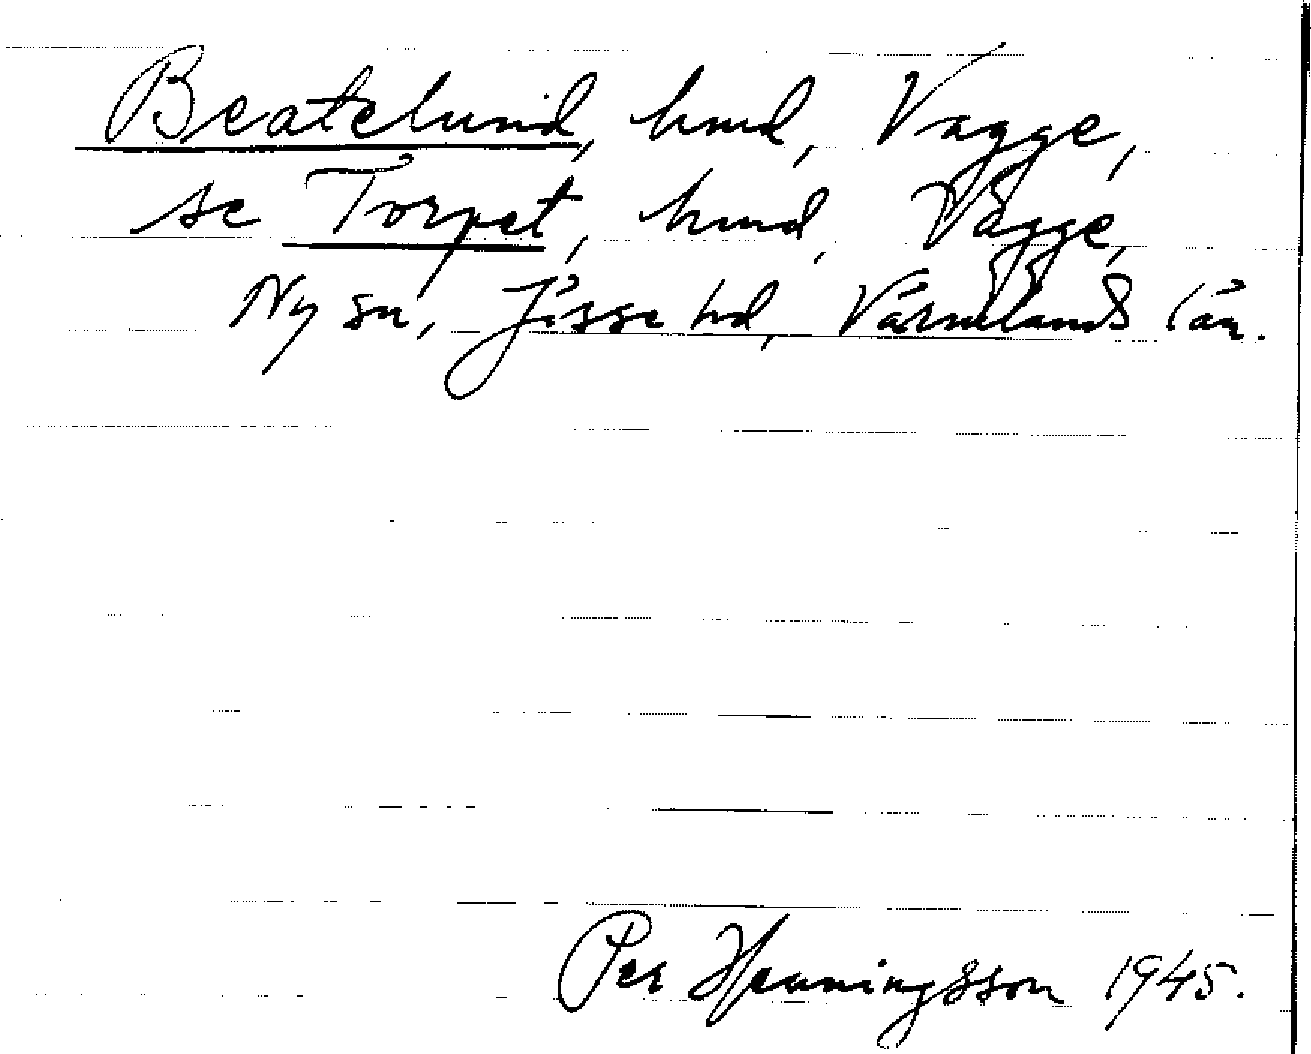 Beatelund, hmd, Vägge,
se Torpet, hmd, Vägge,
Ny sn, Jösse hd, Värmlands län.
Per Henningsson 1945.